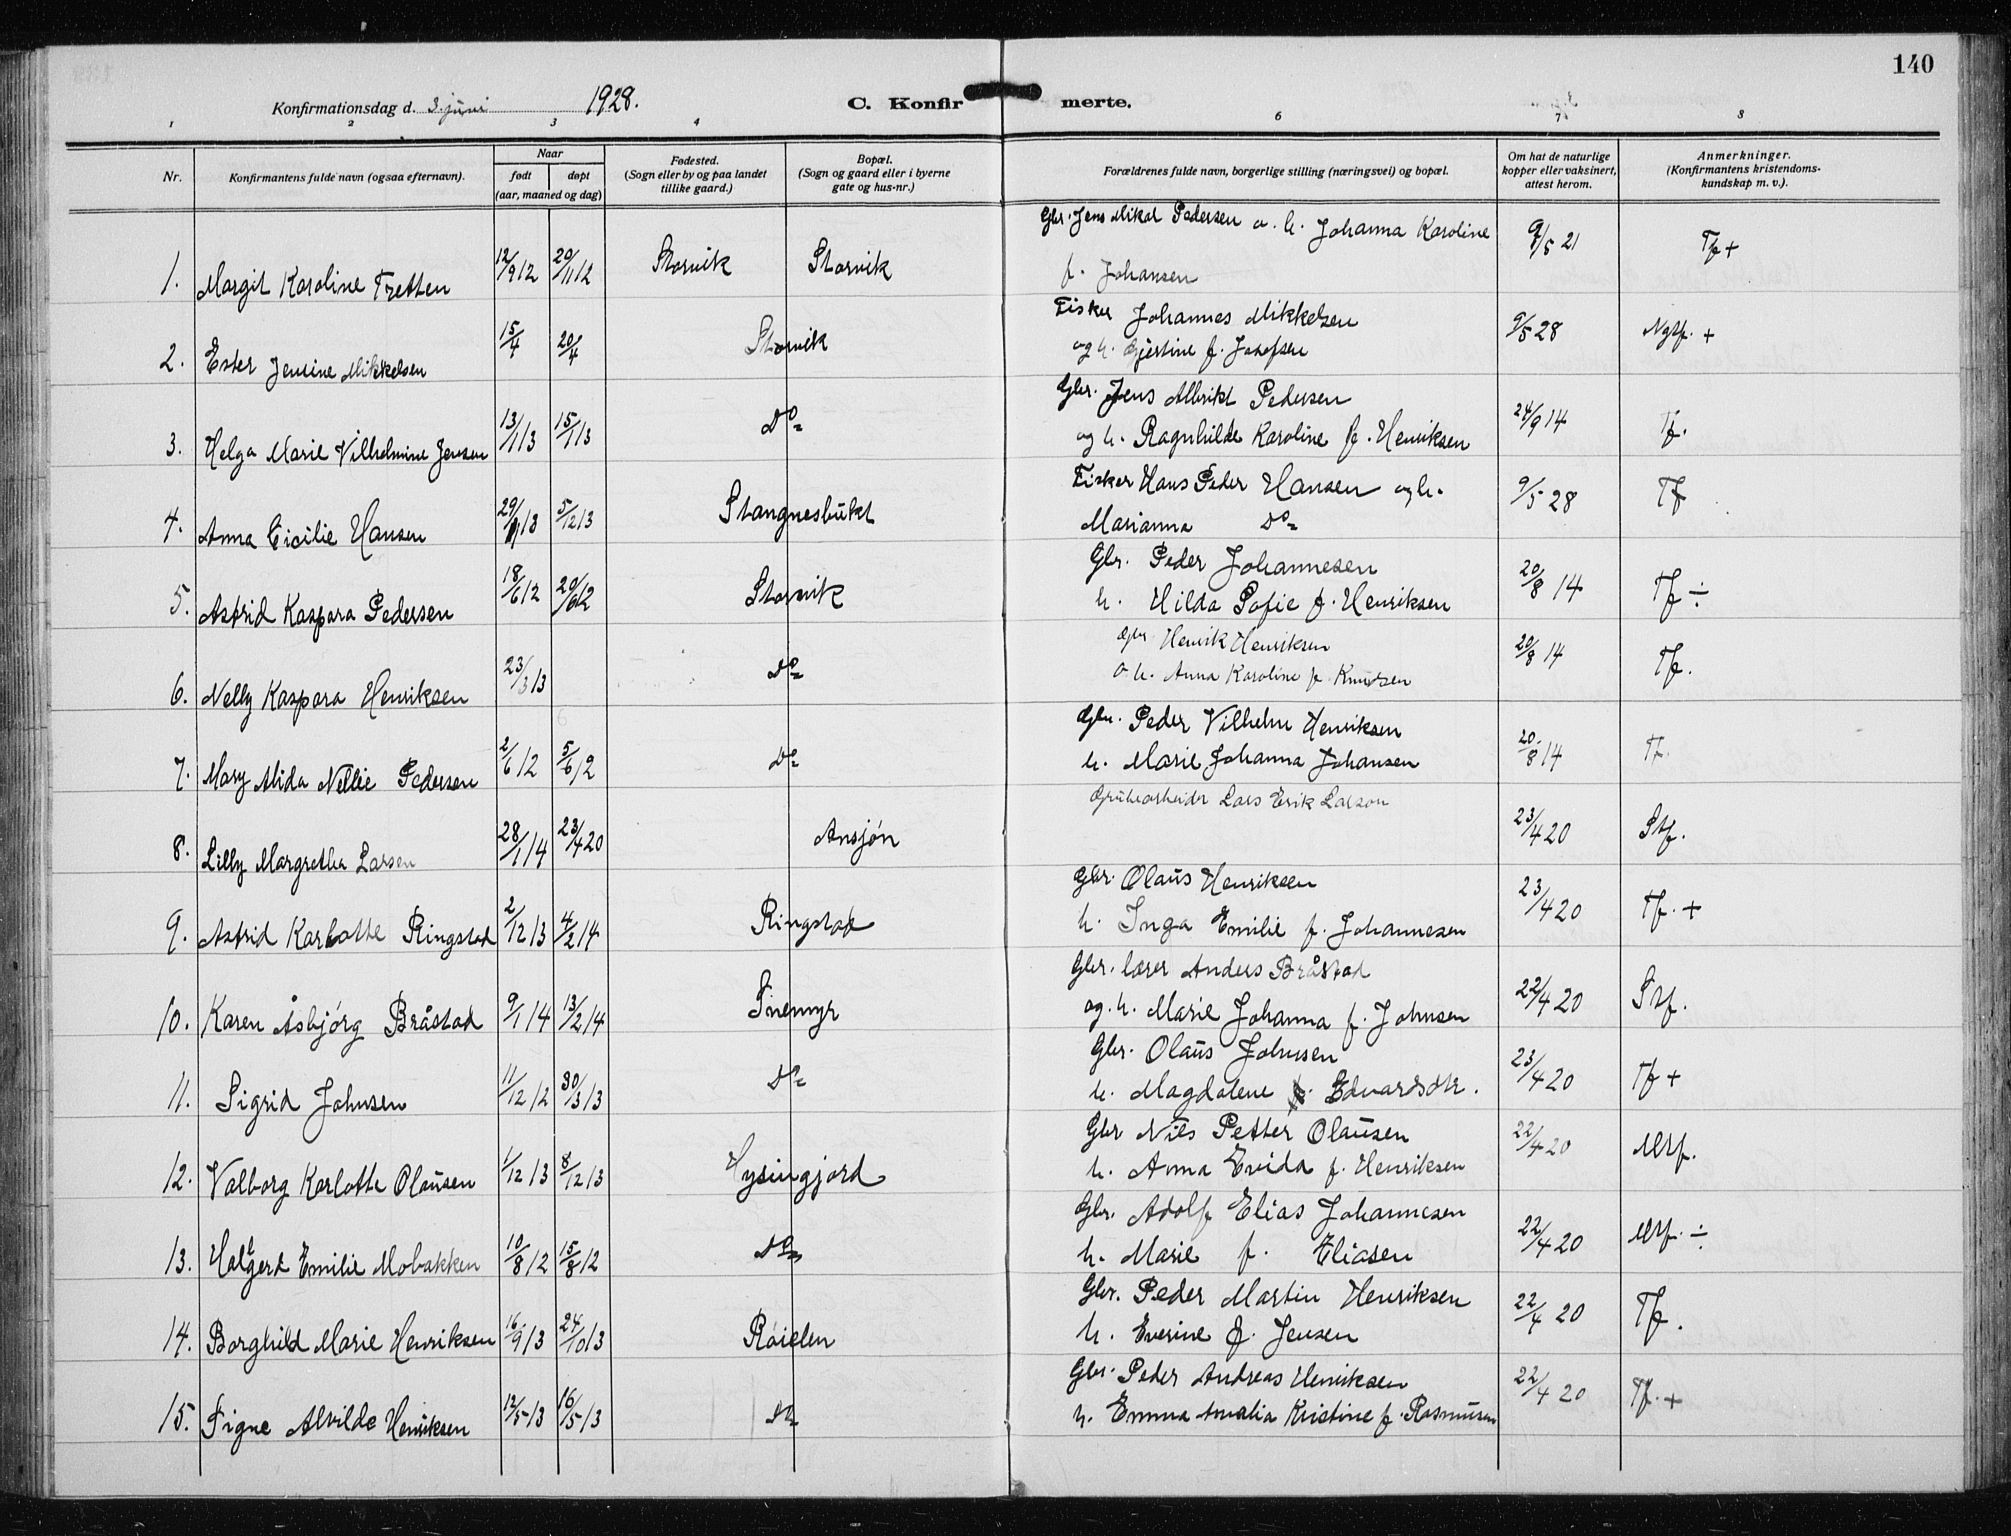 140
Konfirmationsdag d. 3. juni 1928. C. Konfirmerte.
1 2 3 4 6 7 8
Nr. Konfirmantens fulde navn (ogsaa efternavn). Naar født døpt (aar, maaned og dag) Fødested. (Sogn eller by og paa landet tillike gaard.) Bopæl. (Sogn og gaard eller i byerne gate og hus-nr.) Forældrenes fulde navn, borgerlige stilling (næringsvei) og bopæl. Om hat de naturlige kopper eller vaksinert, attest herom. Anmerkninger. (Konfirmantens kristendomskundskap m. v.).
Gbr. Jens Mikal Pedersen o. h. Johanna Karoline
1. Margit Karoline Tretten 12/9 12 20/11 12 Storvik Storvik f. Johansen 9/5 21 Tf +
Fisker Johannes Mikkelsen
2. Ester Jensine Mikkelsen 15/4 20/4 Storvik og h. Gjertine f. Josefsen 9/5 28 Ngtf. +
Gbr. Jens Albrikt Pedersen
3. Helga Marie Vilhelmine Jensen 13/1 13 15/1 13 Do og h. Ragnhilde Karoline f. Henriksen 24/9 14 Tf.
Fisker Hans Peder Hansen og h.
4. Anna Cicilie Hansen 29/ 13 5/12 13 Stangnesbukt Marianna Do 9/5 28 Tf
Gbr. Peder Johannesen
5. Astrid Kaspara Pedersen 18/6 12 20/6 12 Storvik h. Hilda Sofie f. Henriksen 20/8 14 Tf ÷
Gbr. Henrik Henriksen
6. Nelly Kaspara Henriksen 23/3 13 Do o h. Anna Karoline f. Knudsen 20/8 14 Tf.
Gbr. Peder Vilhelm Henriksen
7. Mary Alida Nellie Pedersen 2/6 12 5/6 12 Do h. Marie Johanna Johansen 20/8 14 Tf
Grubearbeider Lars Erik Larson
8. Lilly Margretha Larsen 28/1 14 23/4 20 Ansjøn 23/4 20 Stf.
Gbr. Olaus Henriksen
9. Astrid Karlotte Ringstad 2/12 13 4/2 14 Ringstad h. Inga Emilie f. Johannesen 23/4 20 Tf. +
Gbr. lærer Anders Bråstad
10. Karen Åsbjørg Bråstad 9/1 14 13/2 14 Snemyr og. h. Marie Johanna f. Johnsen 22/4 20 Stf.
Gbr. Olaus Johnsen
11. Sigrid Johnsen 11/12 12 30/3 13 Do h. Magdalene Edvardsdtr. 23/4 20 Tf +
Gbr Nils Petter Olausen
12. Valborg Karlotte Olausen 1/12 13 8/12 13 Hysingjord h. Anna Evida f. Henriksen 22/4 20 Mtf.
Gbr. Adolf Elias Johannesen
13. Halgerd Emilie Mobakken 10/8 12 15/8 12 Do h. Marie f. Eliasen 22/4 20 Mtf. ÷
Gbr. Peder Martin Henriksen
14. Borghild Marie Henriksen 16/9 13 24/10 13 Røielen h. Everine f. Jensen 22/4 20 Tf.
Gbr. Peder Andreas Henriksen
15. Signe Alvilde Henriksen 12/5 13 16/5 13 Do h. Emma Amalia Kristine f. Rasmusen 22/4 20 Tf. +